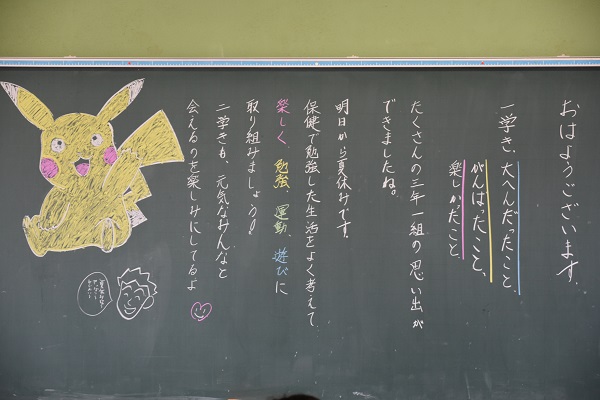 おはようございます。
一学き、大へんだったこと、
がんばったこと、
楽しかたこと、
たくさんの三年一組の思い出が
できましたね。
明日から夏休みです。
保健で勉強した生活をよく考えて
楽しく、勉強、運動、遊びに
取り組みましょう！
二学きも、元気なみんなと
会えるのを楽しみにしてるよ